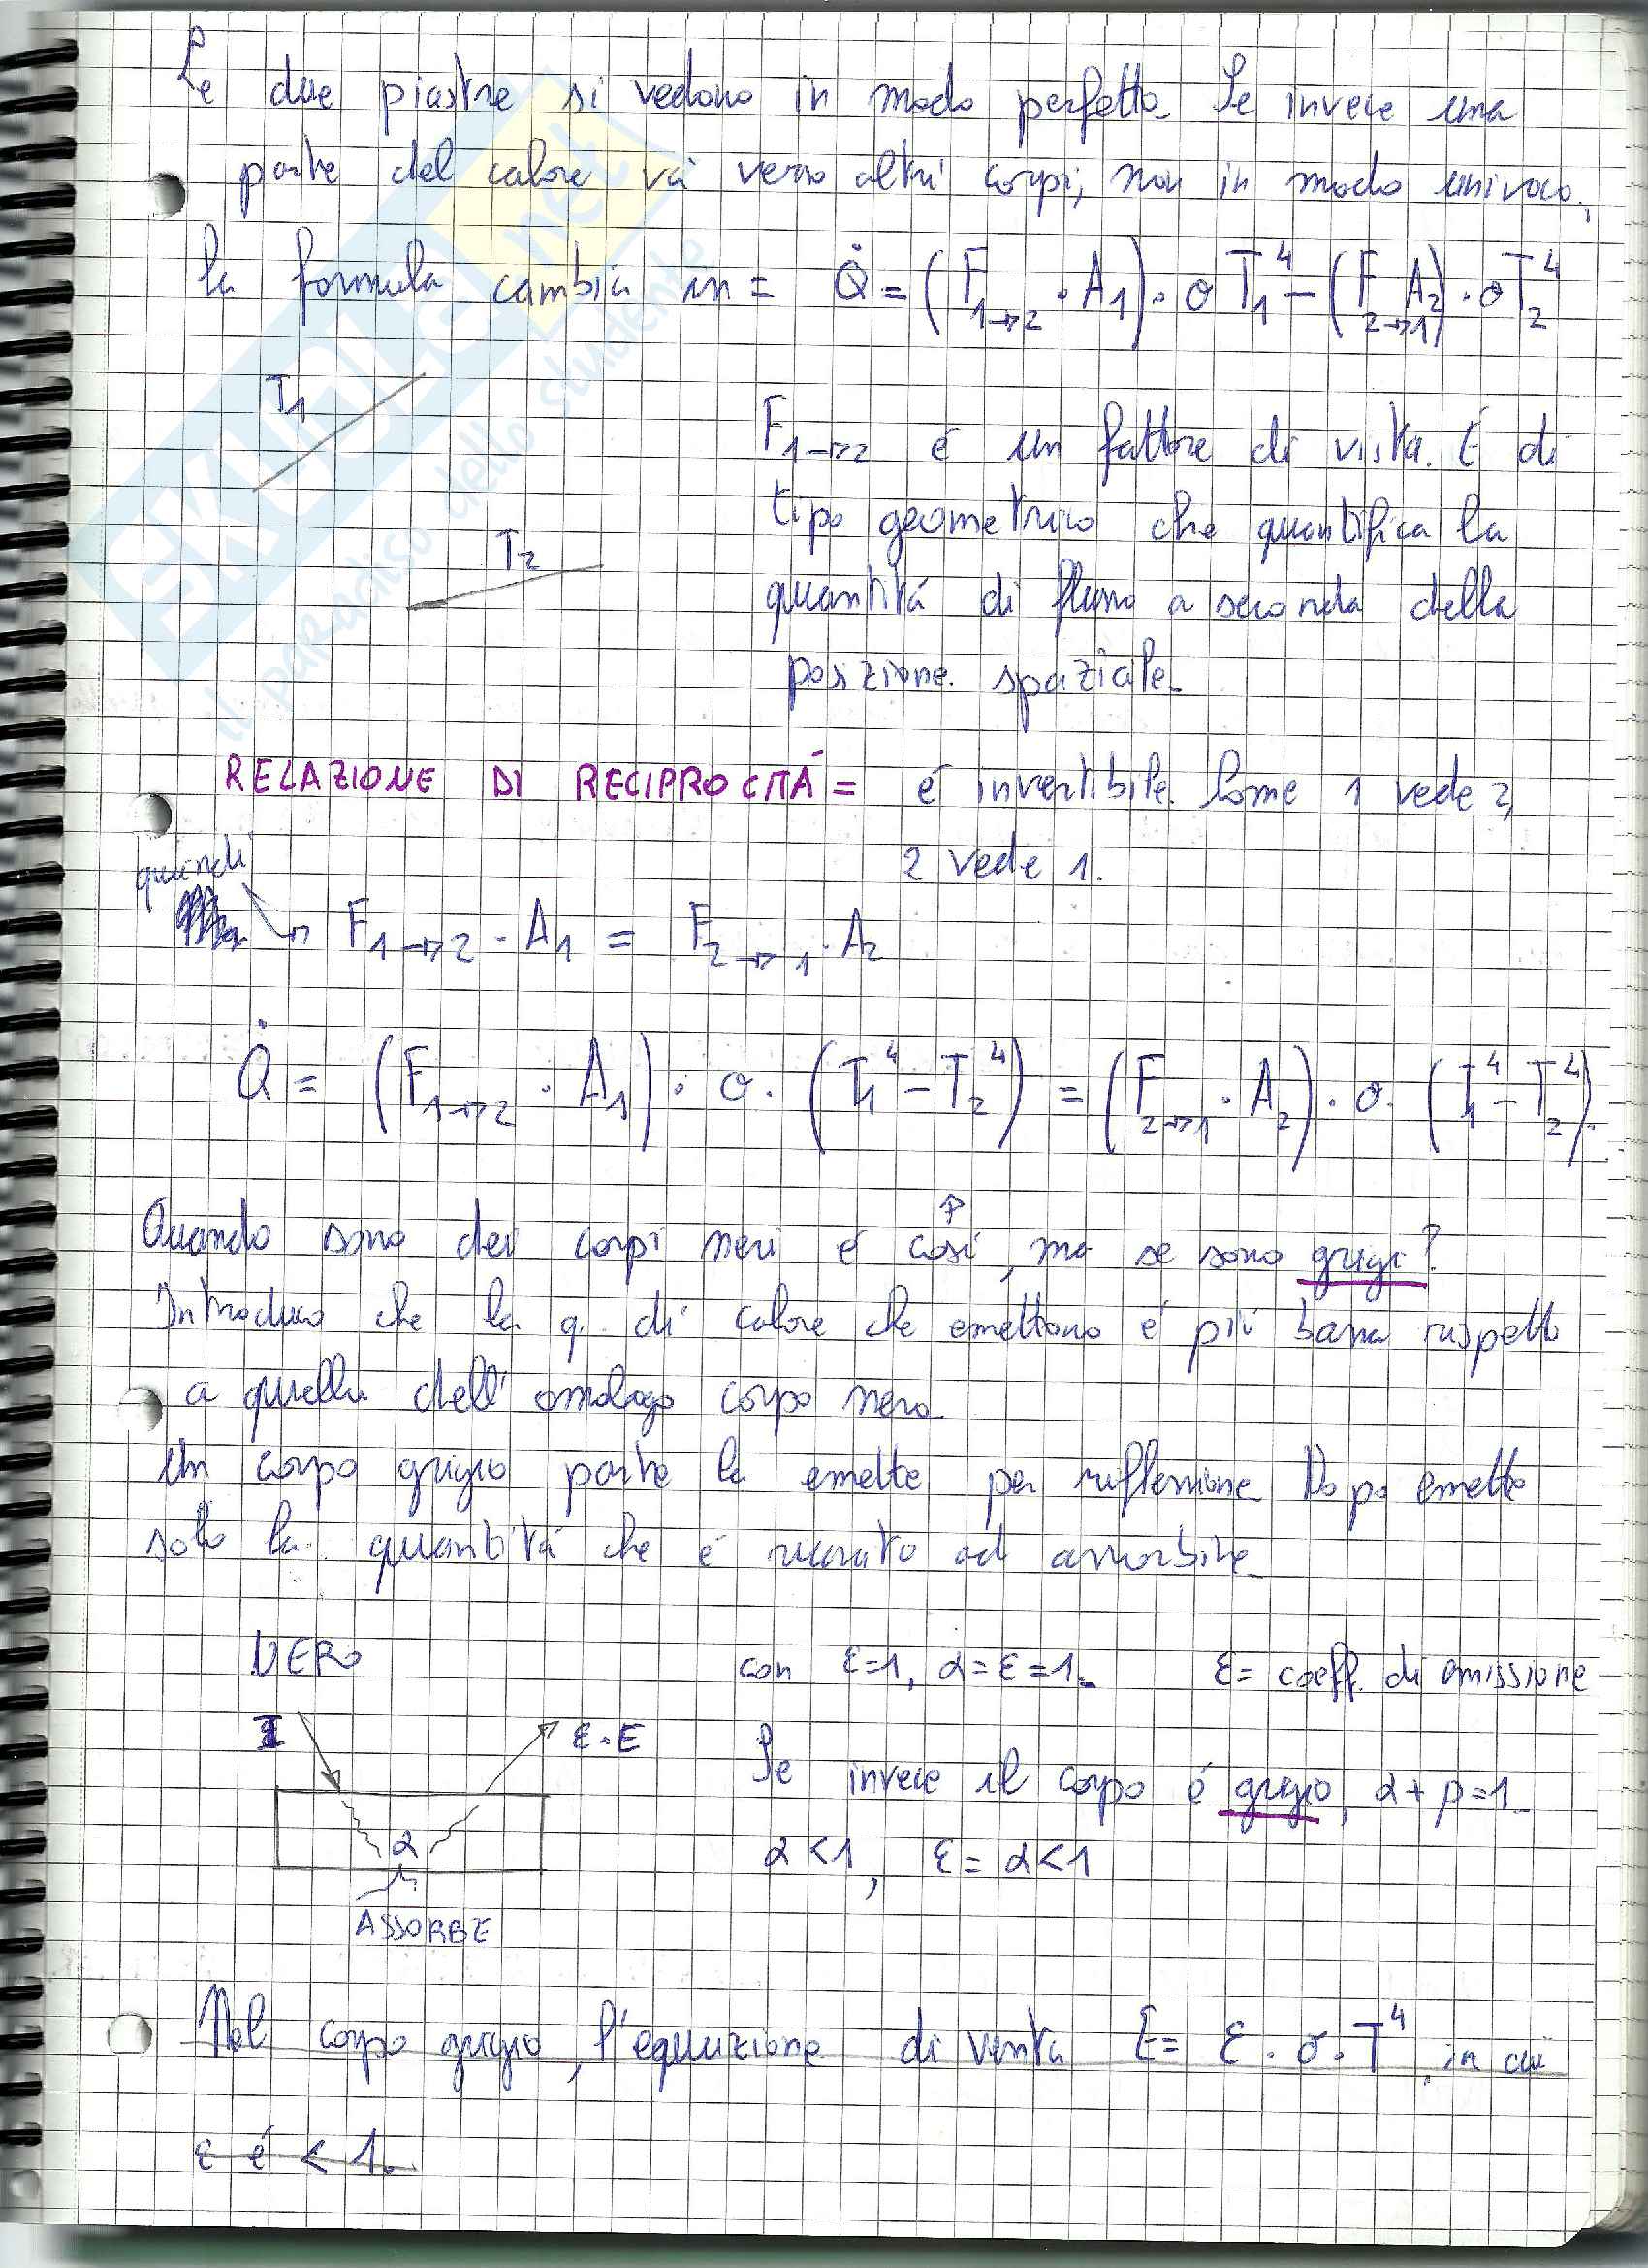 Le due piastre si vedono in modo perfetto. Se invece una
parte del calore va verso altri corpi, non in modo univoco,
la formula cambia in = Q̇ = (F1→2 · A1) · σ T1⁴ − (F2→1 A2) · σT2⁴
T1
T2
F1→2 é un fattore di vista. É di
tipo geometrico che quantifica la
quantitá di flusso a seconda della
posizione spaziale.
RELAZIONE DI RECIPROCITÁ = é invertibile. Come 1 vede 2,
2 vede 1.
quindi
→ F1→2 · A1 = F2→1 · A2
Q̇ = (F1→2 · A1) · σ · (T1⁴ − T2⁴) = (F2→1 · A2) · σ · (T1⁴ − T2⁴).
Quando sono dei corpi neri é cosí, ma se sono grigi?
Introduco che la q. di calore che emettono é piú bassa rispetto
a quella dell'omologo corpo nero.
Un corpo grigio parte la emette per riflessione. Dopo emette
solo la quantitá che é riuscito ad assorbire.
NERO
con ε=1, α=ε=1. ε= coeff. di emissione
I
ε·E
Se invece il corpo é grigio, α+ρ=1.
α<1, ε= α<1
α
ASSORBE
Nel corpo grigio, l'equazione diventa E= ε · σ · T⁴, in cui
ε é < 1.
SKUOLA.net
il paradiso dello studente